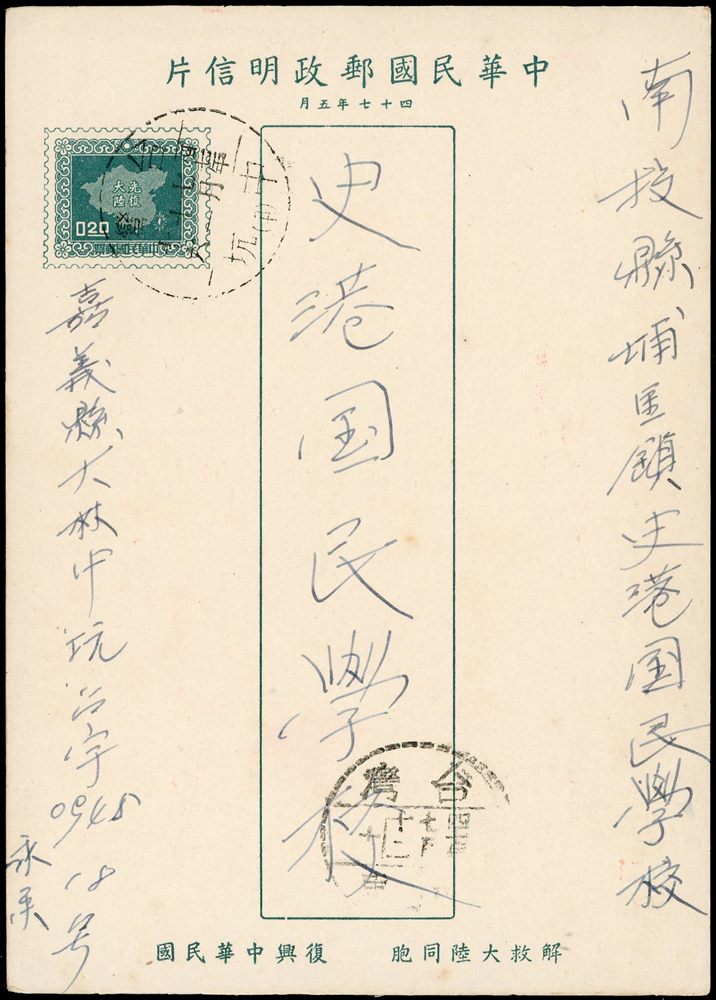 片信明政郵國民華中
月五年七十四
南投縣埔里鎮史港国民學校
史港国民學校
光復
大陸
0.20
嘉義縣大林中坑台字
0948
18号
台灣
中坑
解救大陸同胞 復興中華民國